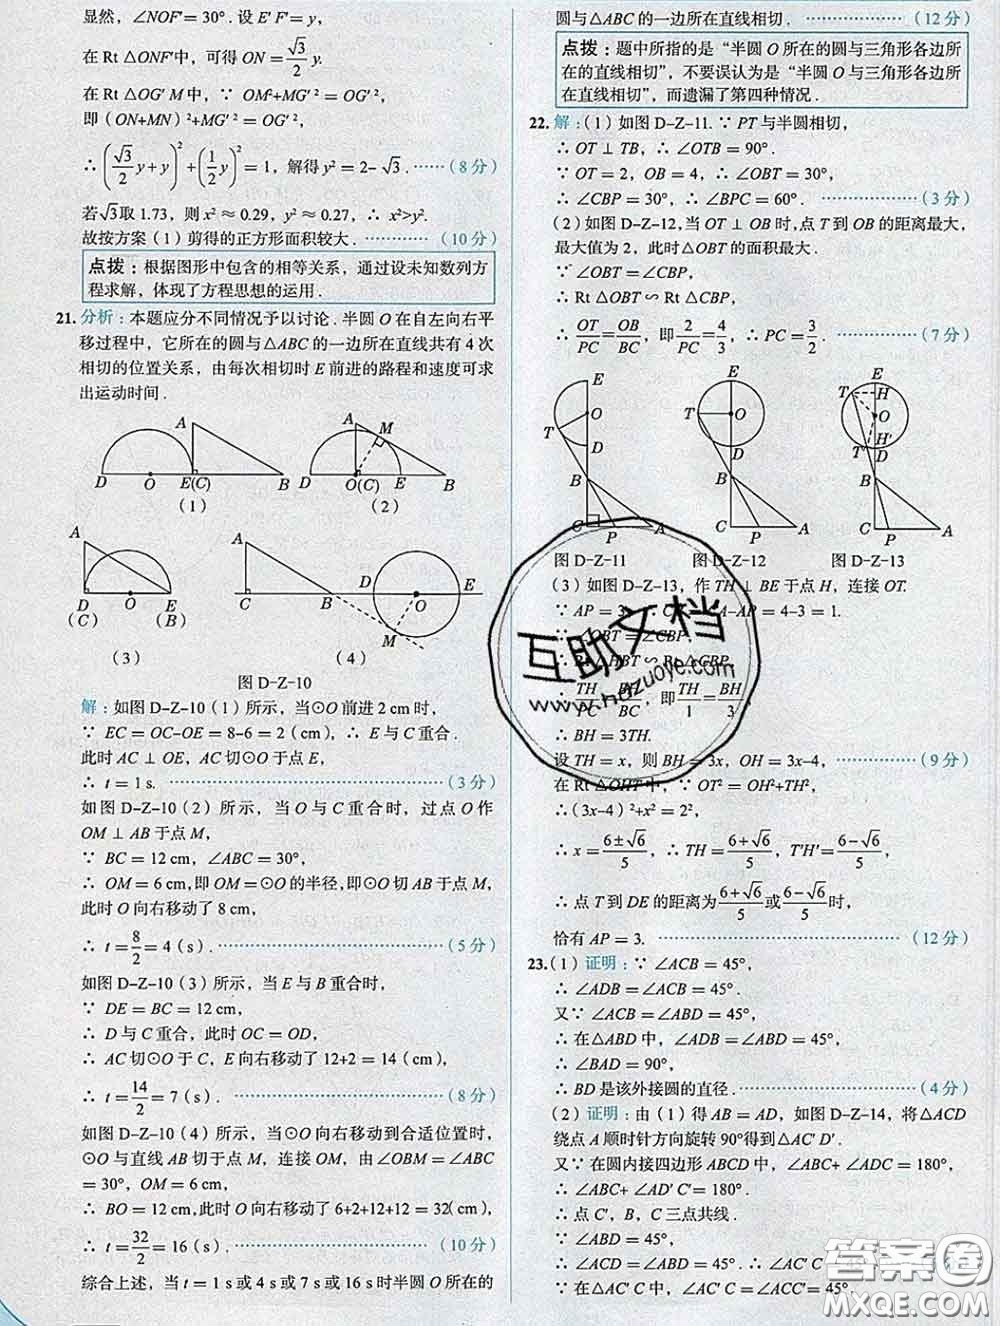 显然，∠NOF′=30°. 设 E′F′=y，
在 Rt △ONF′中，可得 ON=√3/2 y.
在 Rt △OG′M 中，∵ OM²+MG′²=OG′²，
即（ON+MN）²+MG′²=OG′²，
∴ (√3/2 y+y)²+(1/2 y)²=1，解得 y²=2-√3. ……（8分）
若√3取 1.73，则 x²≈0.29，y²≈0.27，∴ x²>y².
故按方案（1）剪得的正方形面积较大. …………（10分）
点拨：根据图形中包含的相等关系，通过设未知数列方
程求解，体现了方程思想的运用.
21. 分析：本题应分不同情况予以讨论. 半圆 O 在自左向右平
移过程中，它所在的圆与△ABC 的一边所在直线共有 4 次
相切的位置关系，由每次相切时 E 前进的路程和速度可求
出运动时间.
A
D O E(C) B
（1）
A M
D O(C) E B
（2）
A
D O E
（C） （B）
（3）
A
C B D O E
M
（4）
图 D-Z-10
解：如图 D-Z-10（1）所示，当⊙O 前进 2 cm 时，
∵ EC=OC-OE=8-6=2（cm），∴ E 与 C 重合.
此时 AC⊥OE，AC 切⊙O 于点 E，
∴ t=1 s. ……（3分）
如图 D-Z-10（2）所示，当 O 与 C 重合时，过点 O 作
OM⊥AB 于点 M，
∵ BC=12 cm，∠ABC=30°，
∴ OM=6 cm，即 OM=⊙O 的半径，即⊙O 切 AB 于点 M，
此时 O 向右移动了 8 cm，
∴ t=8/2=4（s）. ……（5分）
如图 D-Z-10（3）所示，当 E 与 B 重合时，
∵ DE=BC=12 cm，
∴ D 与 C 重合，此时 OC=OD，
∴ AC 切⊙O 于 C，E 向右移动了 12+2=14（cm），
∴ t=14/2=7（s）. ……（8分）
如图 D-Z-10（4）所示，当⊙O 向右移动到合适位置时，
⊙O 与直线 AB 切于点 M，连接 OM，由∠OBM=∠ABC
=30°，OM=6 cm，
∴ BO=12 cm，此时 O 向右移动了 6+2+12+12=32（cm），
∴ t=32/2=16（s）. ……（10分）
综合上述，当 t=1 s 或 4 s 或 7 s 或 16 s 时半圆 O 所在的
圆与△ABC 的一边所在直线相切. ……（12分）
点拨：题中所指的是“半圆 O 所在的圆与三角形各边所
在的直线相切”，不要误认为是“半圆 O 与三角形各边所
在直线相切”，而遗漏了第四种情况.
22. 解：（1）如图 D-Z-11. ∵ PT 与半圆相切，
∴ OT⊥TB，∴ ∠OTB=90°.
∵ OT=2，OB=4，∴ ∠OBT=30°，
∴ ∠CBP=30°，∴ ∠BPC=60°. ……（3分）
（2）如图 D-Z-12，当 OT⊥OB 时，点 T 到 OB 的距离最大，
最大值为 2，此时△OBT 的面积最大.
∵ ∠OBT=∠CBP，
∴ Rt △OBT∽Rt △CBP，
∴ OT/PC=OB/BC，即2/PC=4/3，∴ PC=3/2. ……（7分）
E O T D B C P A
图 D-Z-11
E T O D B P A
图 D-Z-12
E T H O H′ T′ B P A
图 D-Z-13
（3）如图 D-Z-13，作 TH⊥BE 于点 H，连接 OT.
∵ AP=3 A-AP=4-3=1.
∵ OBT=∠CBP，
∴ HBT∽Rt △CBP，
∴ TH/PC=BH/BC，即TH/1=BH/3，
∴ BH=3TH.
设 TH=x，则 BH=3x，OH=3x-4， ……（9分）
在 Rt △OHT 中，∵ OT²=OH²+TH²，
∴（3x-4）²+x²=2²，
∴ x=(6±√6)/5，∴ TH=(6+√6)/5，T′H′=(6-√6)/5，
∴ 点 T 到 DE 的距离为(6+√6)/5或(6-√6)/5时，
恰有 AP=3. ……（12分）
23.（1）证明：∵ ∠ACB=45°，
∴ ∠ADB=∠ACB=45°.
又∵ ∠ACB=∠ABD=45°，
∴ 在△ABD 中，∠ADB=∠ABD=45°，
∴ ∠BAD=90°，
∴ BD 是该外接圆的直径. ……（4分）
（2）证明：由（1）得 AB=AD，如图 D-Z-14，将△ACD
绕点 A 顺时针方向旋转 90°得到△AC′D′.
又∵ 在圆内接四边形 ABCD 中，∠ABC+∠ADC=180°，
∴ ∠ABC+∠AD′C′=180°.
∴ 点 C′，B，C 三点共线.
∵ ∠ABD=45°，
∴ ∠ACD=∠ABD=45°，
∴ 在△AC′C 中，∠AC′C=∠ACC′=45°，
互助文档
www.hdzuoye.com
答案卷
MXQE.COM